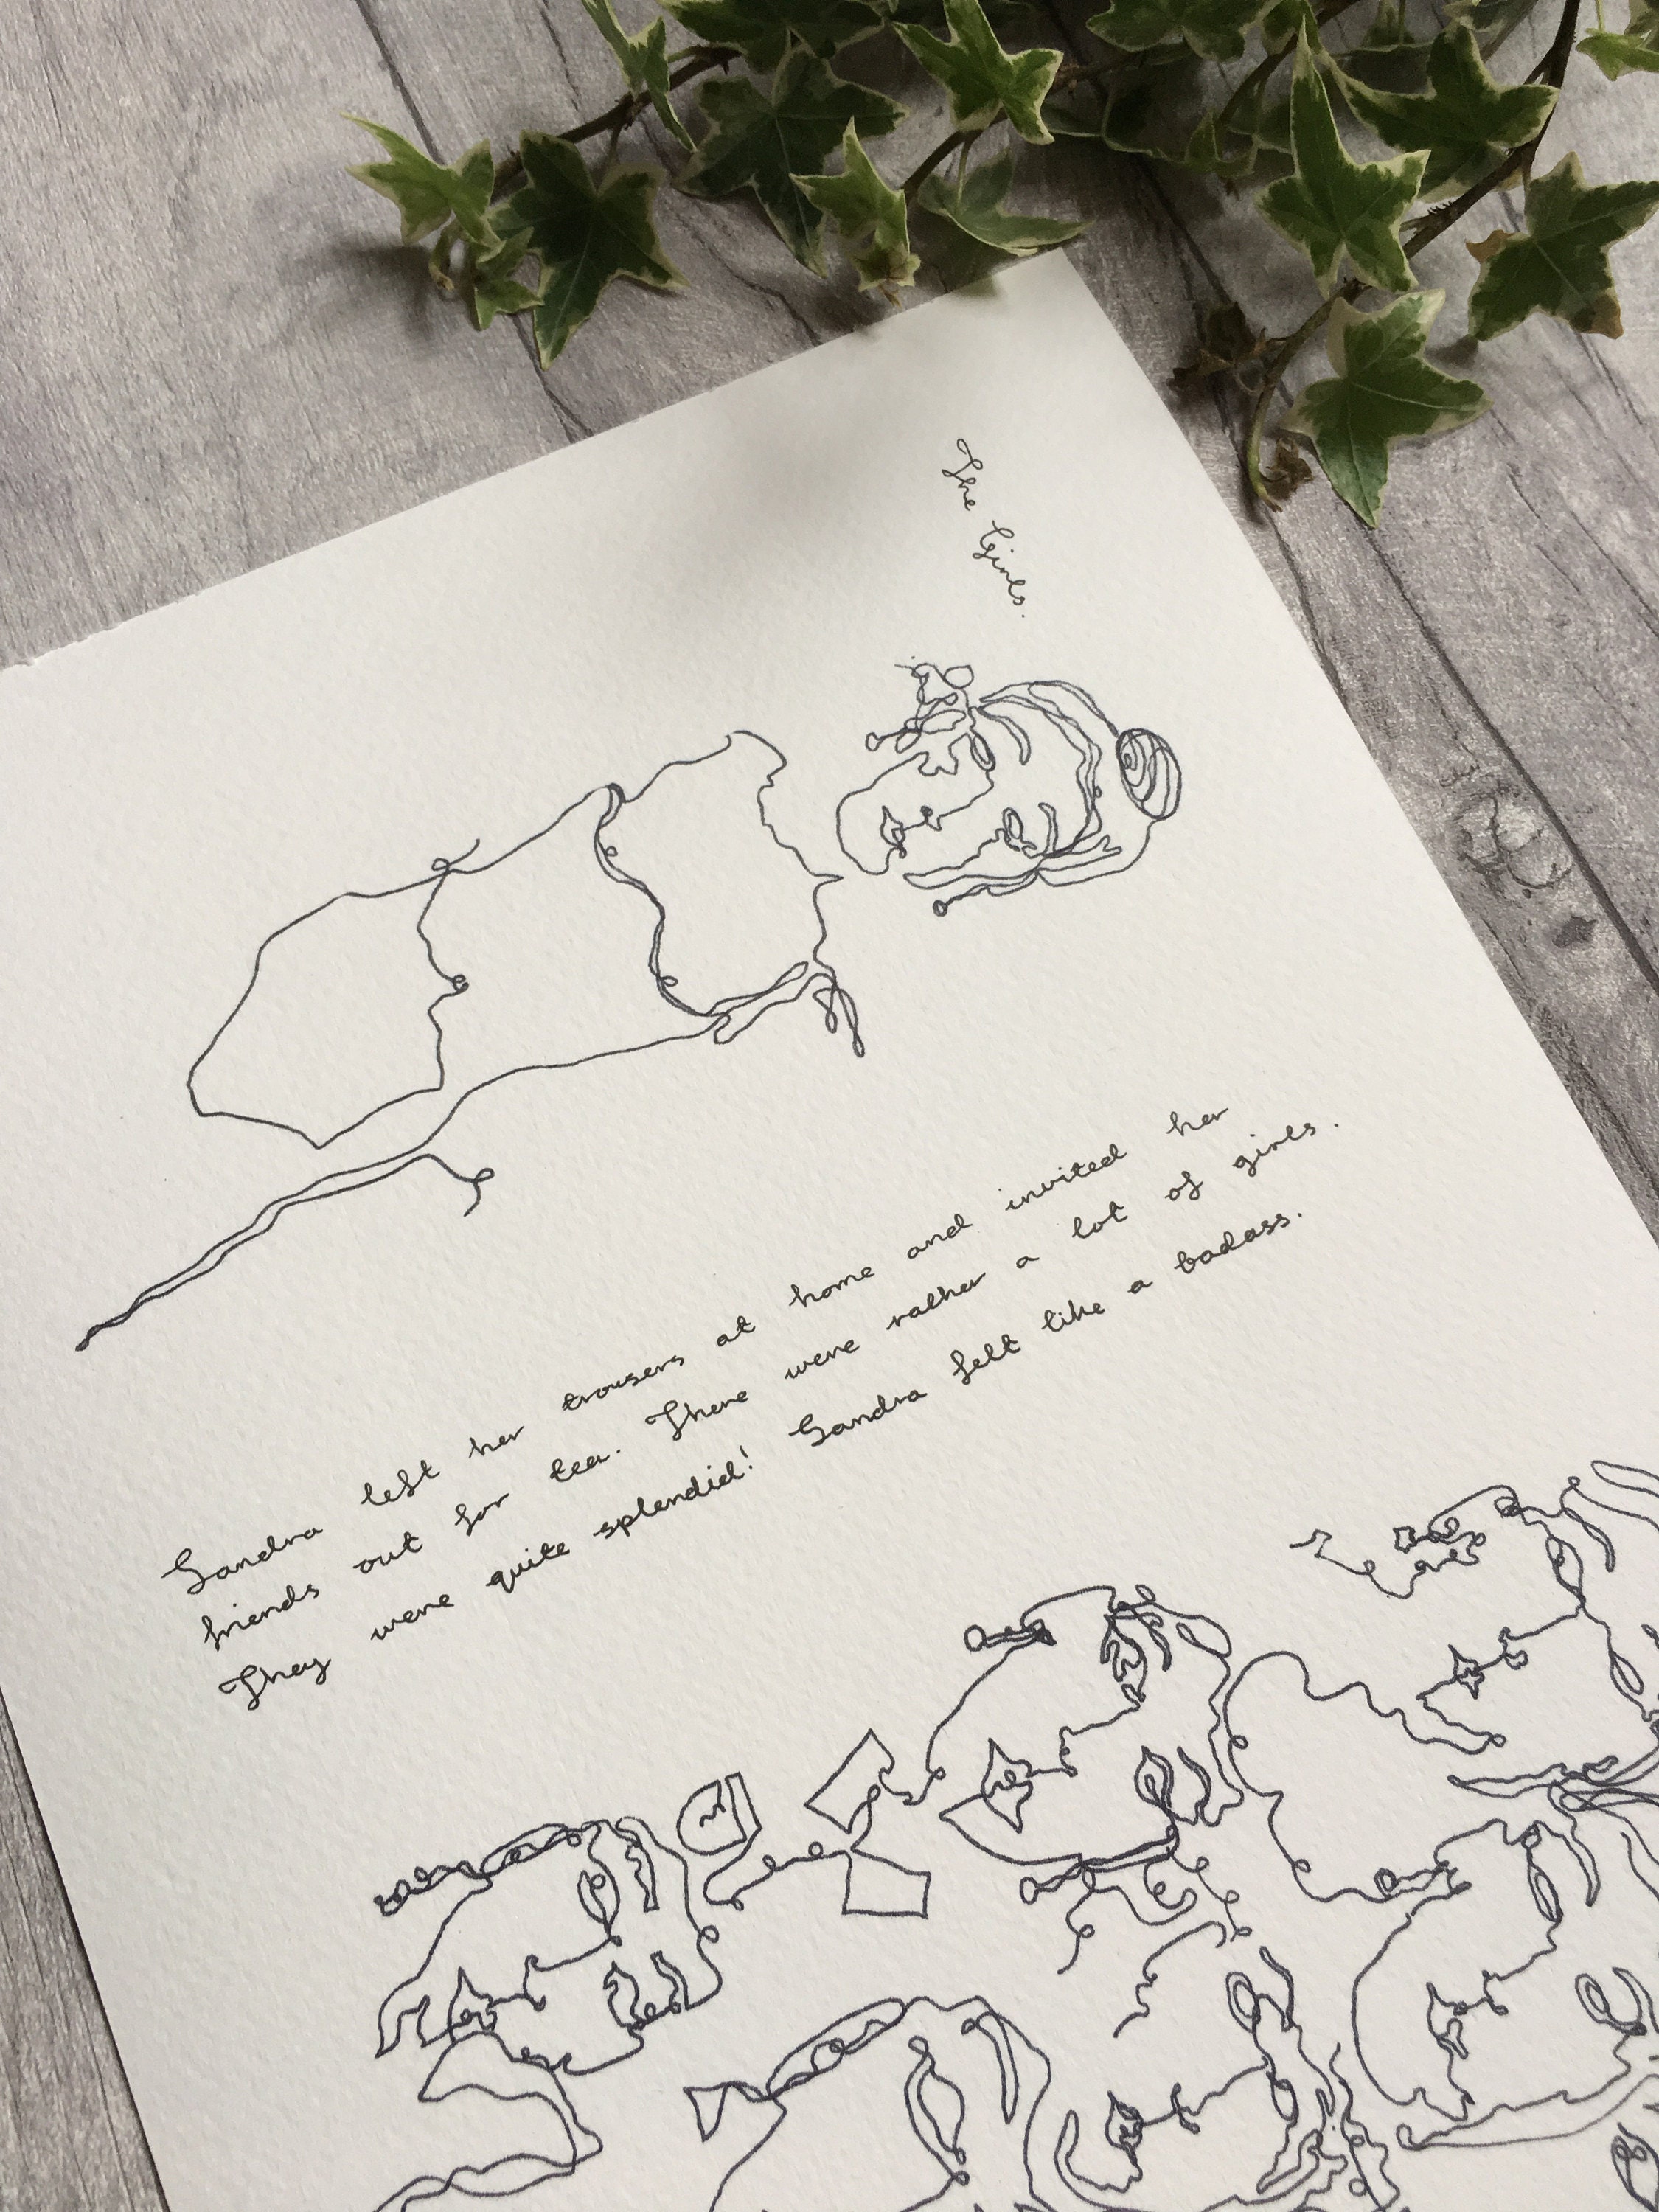 The Girls.
Sandra left her trousers at home and invited her
friends out for tea. There were rather a lot of girls.
They were quite splendid! Sandra felt like a badass.